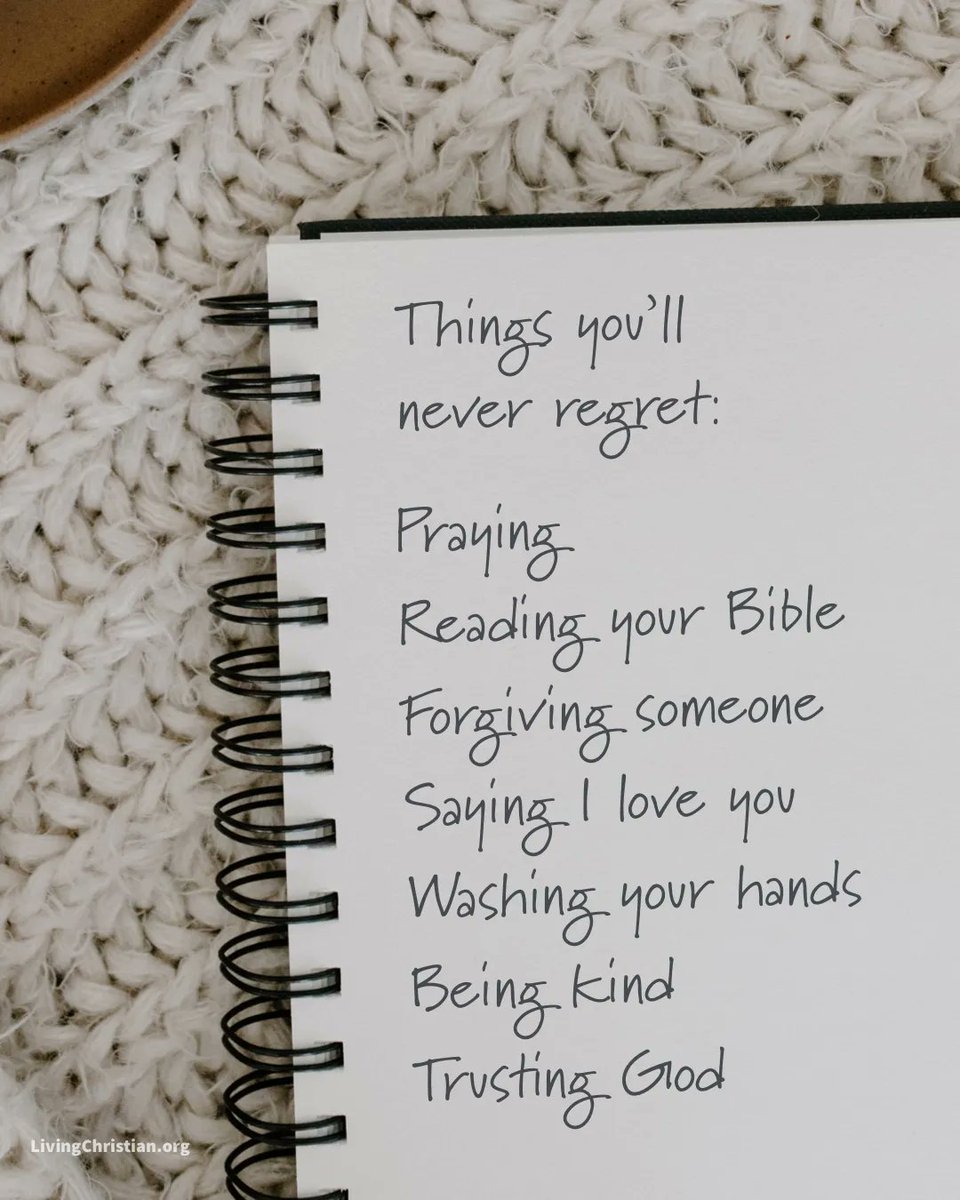 Things you'll
never regret:
Praying
Reading your Bible
Forgiving someone
Saying I love you
Washing your hands
Being kind
Trusting God
LivingChristian.org